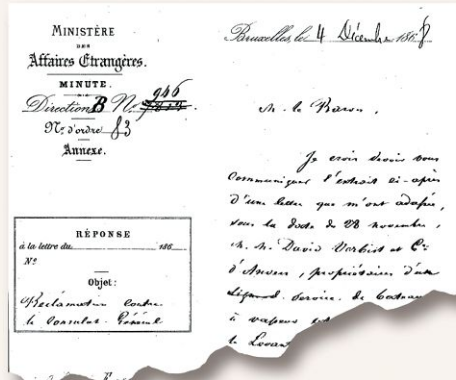 MINISTÈRE
DES
Affaires Étrangères.
MINUTE.
Direction B N.º 946
N.º d'ordre 83
Annexe.
RÉPONSE
à la lettre du 186
N.º
Objet:
Réclamation contre
le Consulat-Général
Bruxelles, le 4 Décembre 1868
M. le Baron,
Je crois devoir vous
communiquer l'extrait ci-après
d'une lettre que m'ont adressée,
sous la date de 28 novembre,
M. M. David Verbist et Cie
d'Anvers, propriétaires d'un
service de bateaux
à vapeur
le Levant